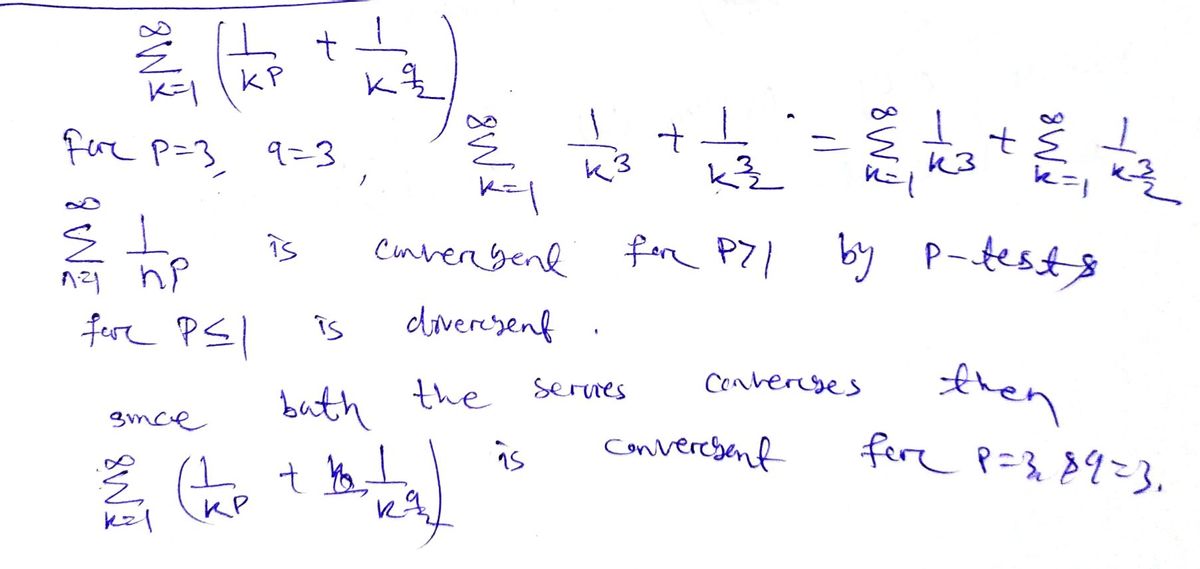 ∞ Σ k=1 ( 1/k^p + 1/k^(q/2) )
for p=3, q=3, ∞ Σ k=1 1/k^3 + 1/k^(3/2) = ∞ Σ k=1 1/k^3 + ∞ Σ k=1 1/k^(3/2)
∞ Σ n=1 1/n^p is convergent for P>1 by p-test &
for P≤1 is divergent.
since both the series converges then
∞ Σ k=1 ( 1/k^p + 1/k^(q/2) ) is convergent for P=3 & q=3.